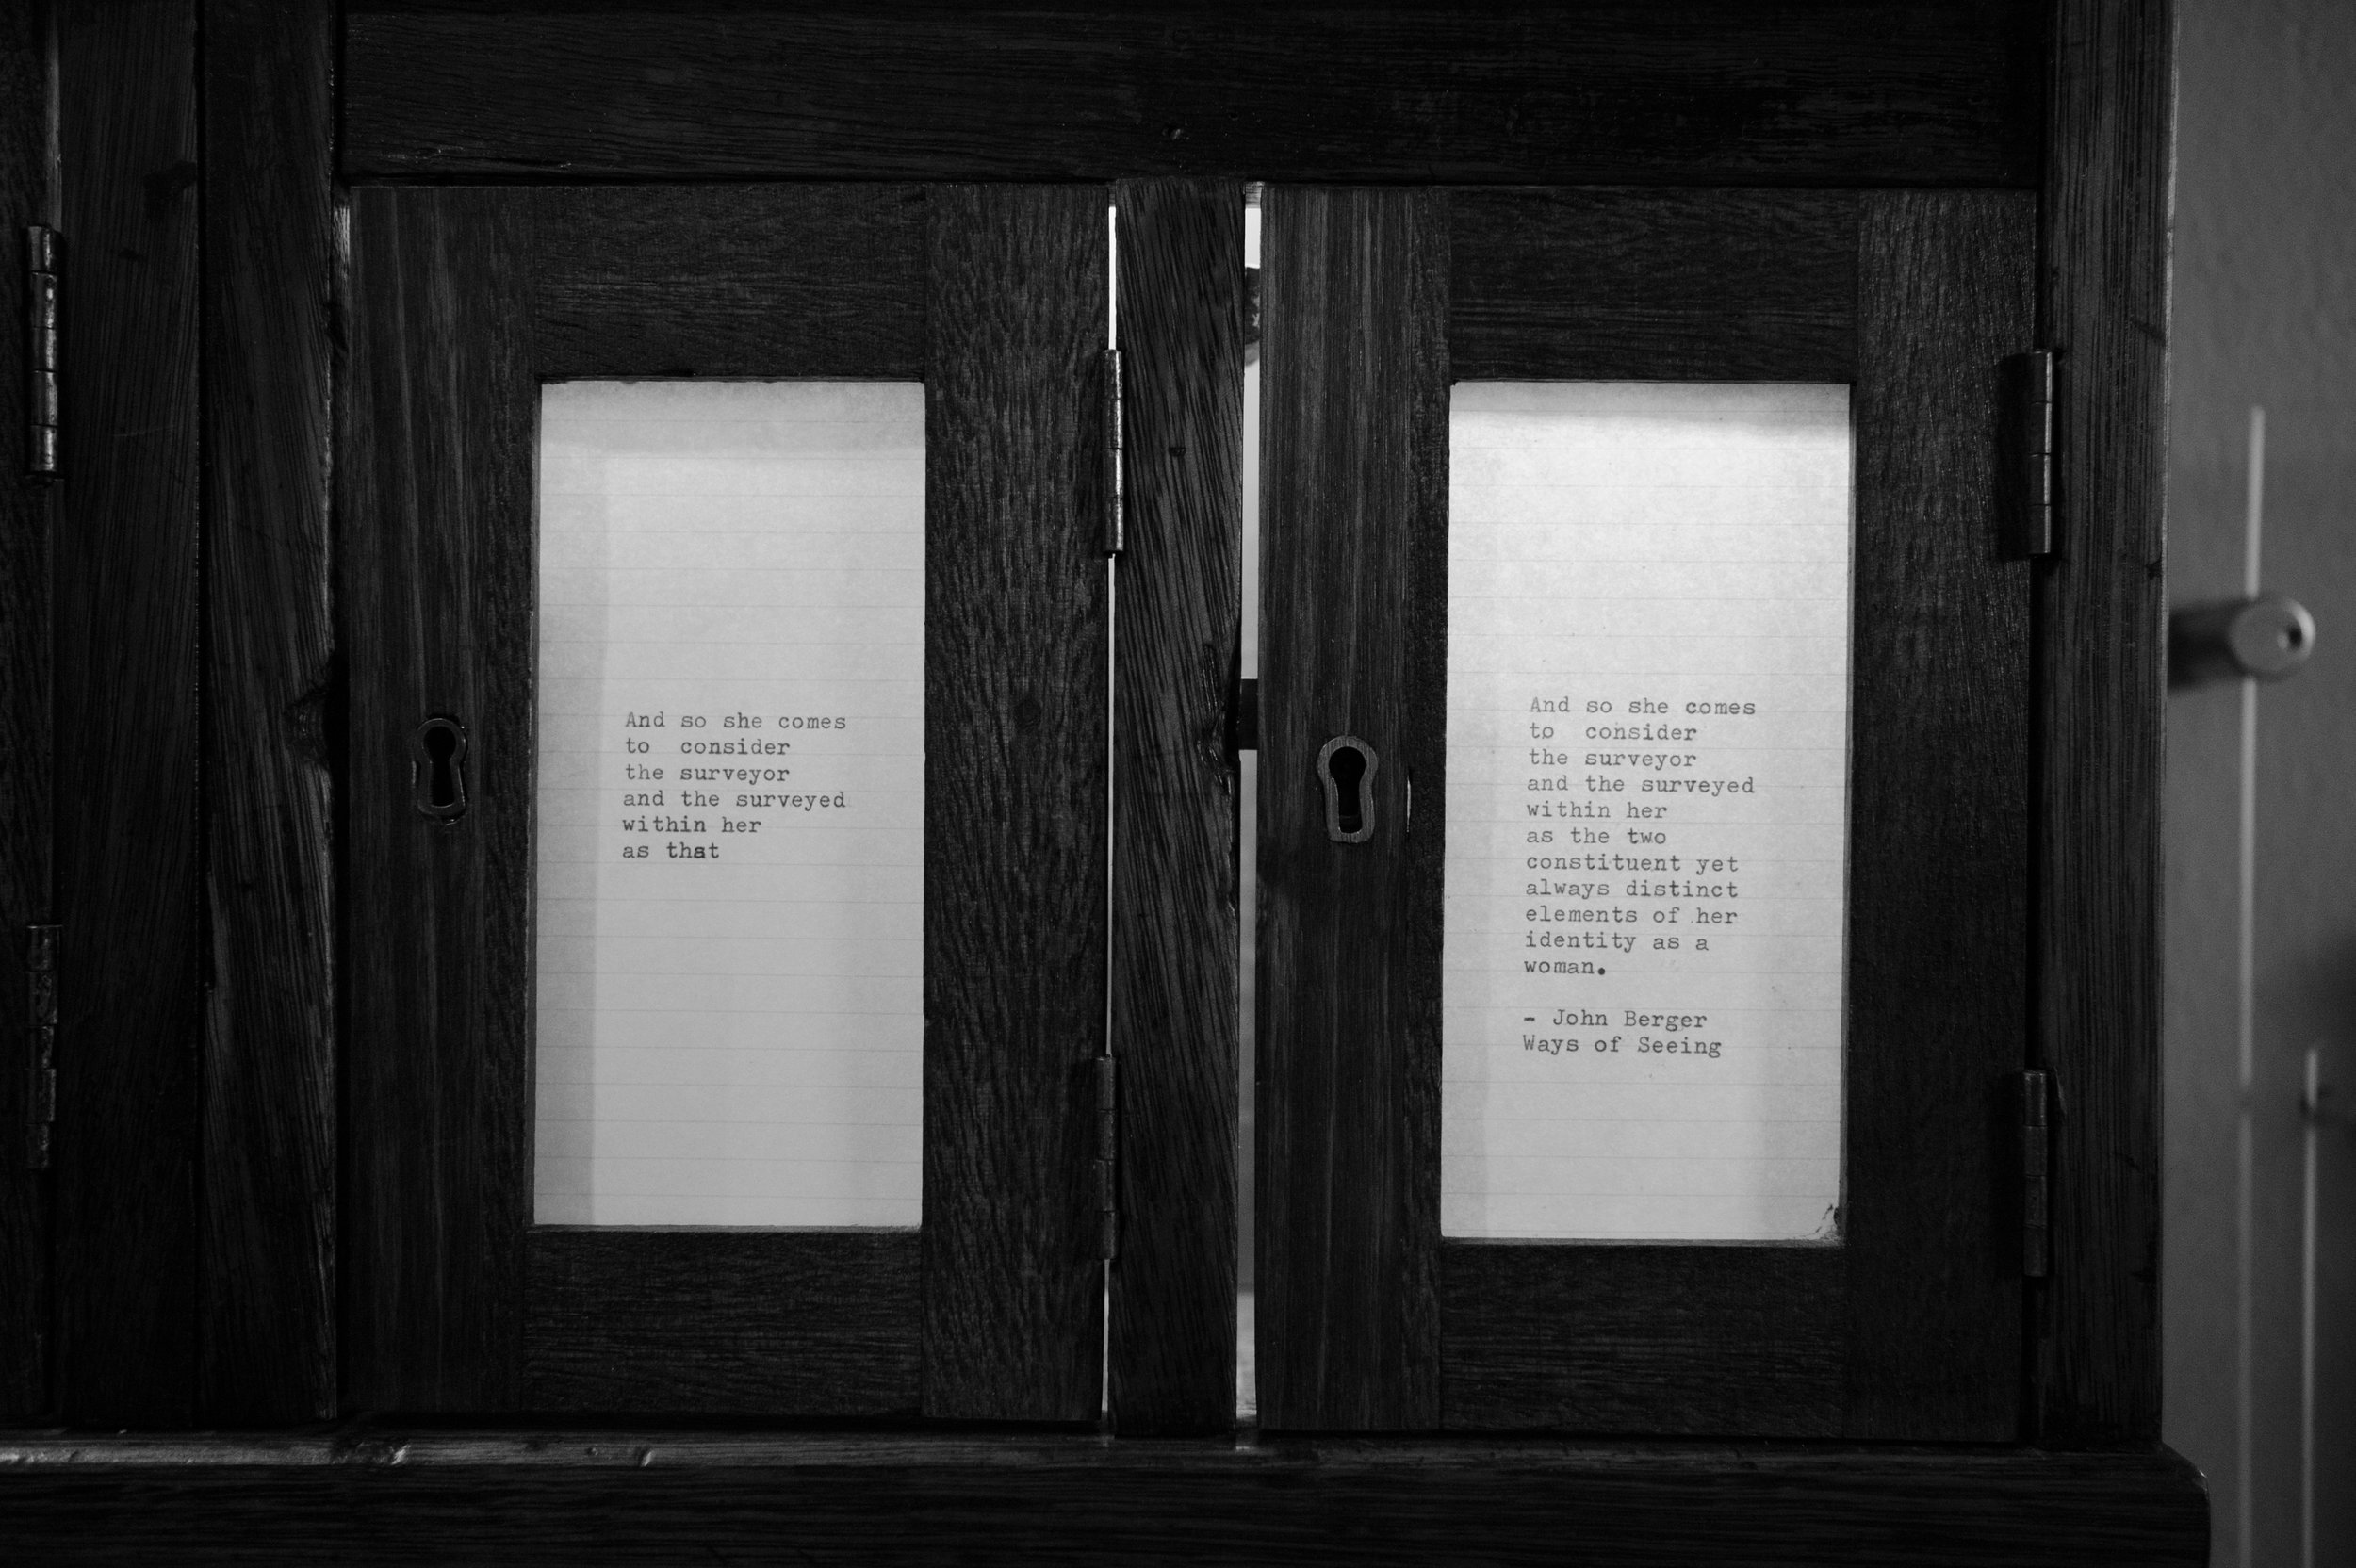 And so she comes
to  consider
the surveyor
and the surveyed
within her
as that
And so she comes
to  consider
the surveyor
and the surveyed
within her
as the two
constituent yet
always distinct
elements of her
identity as a
woman.
- John Berger
Ways of Seeing